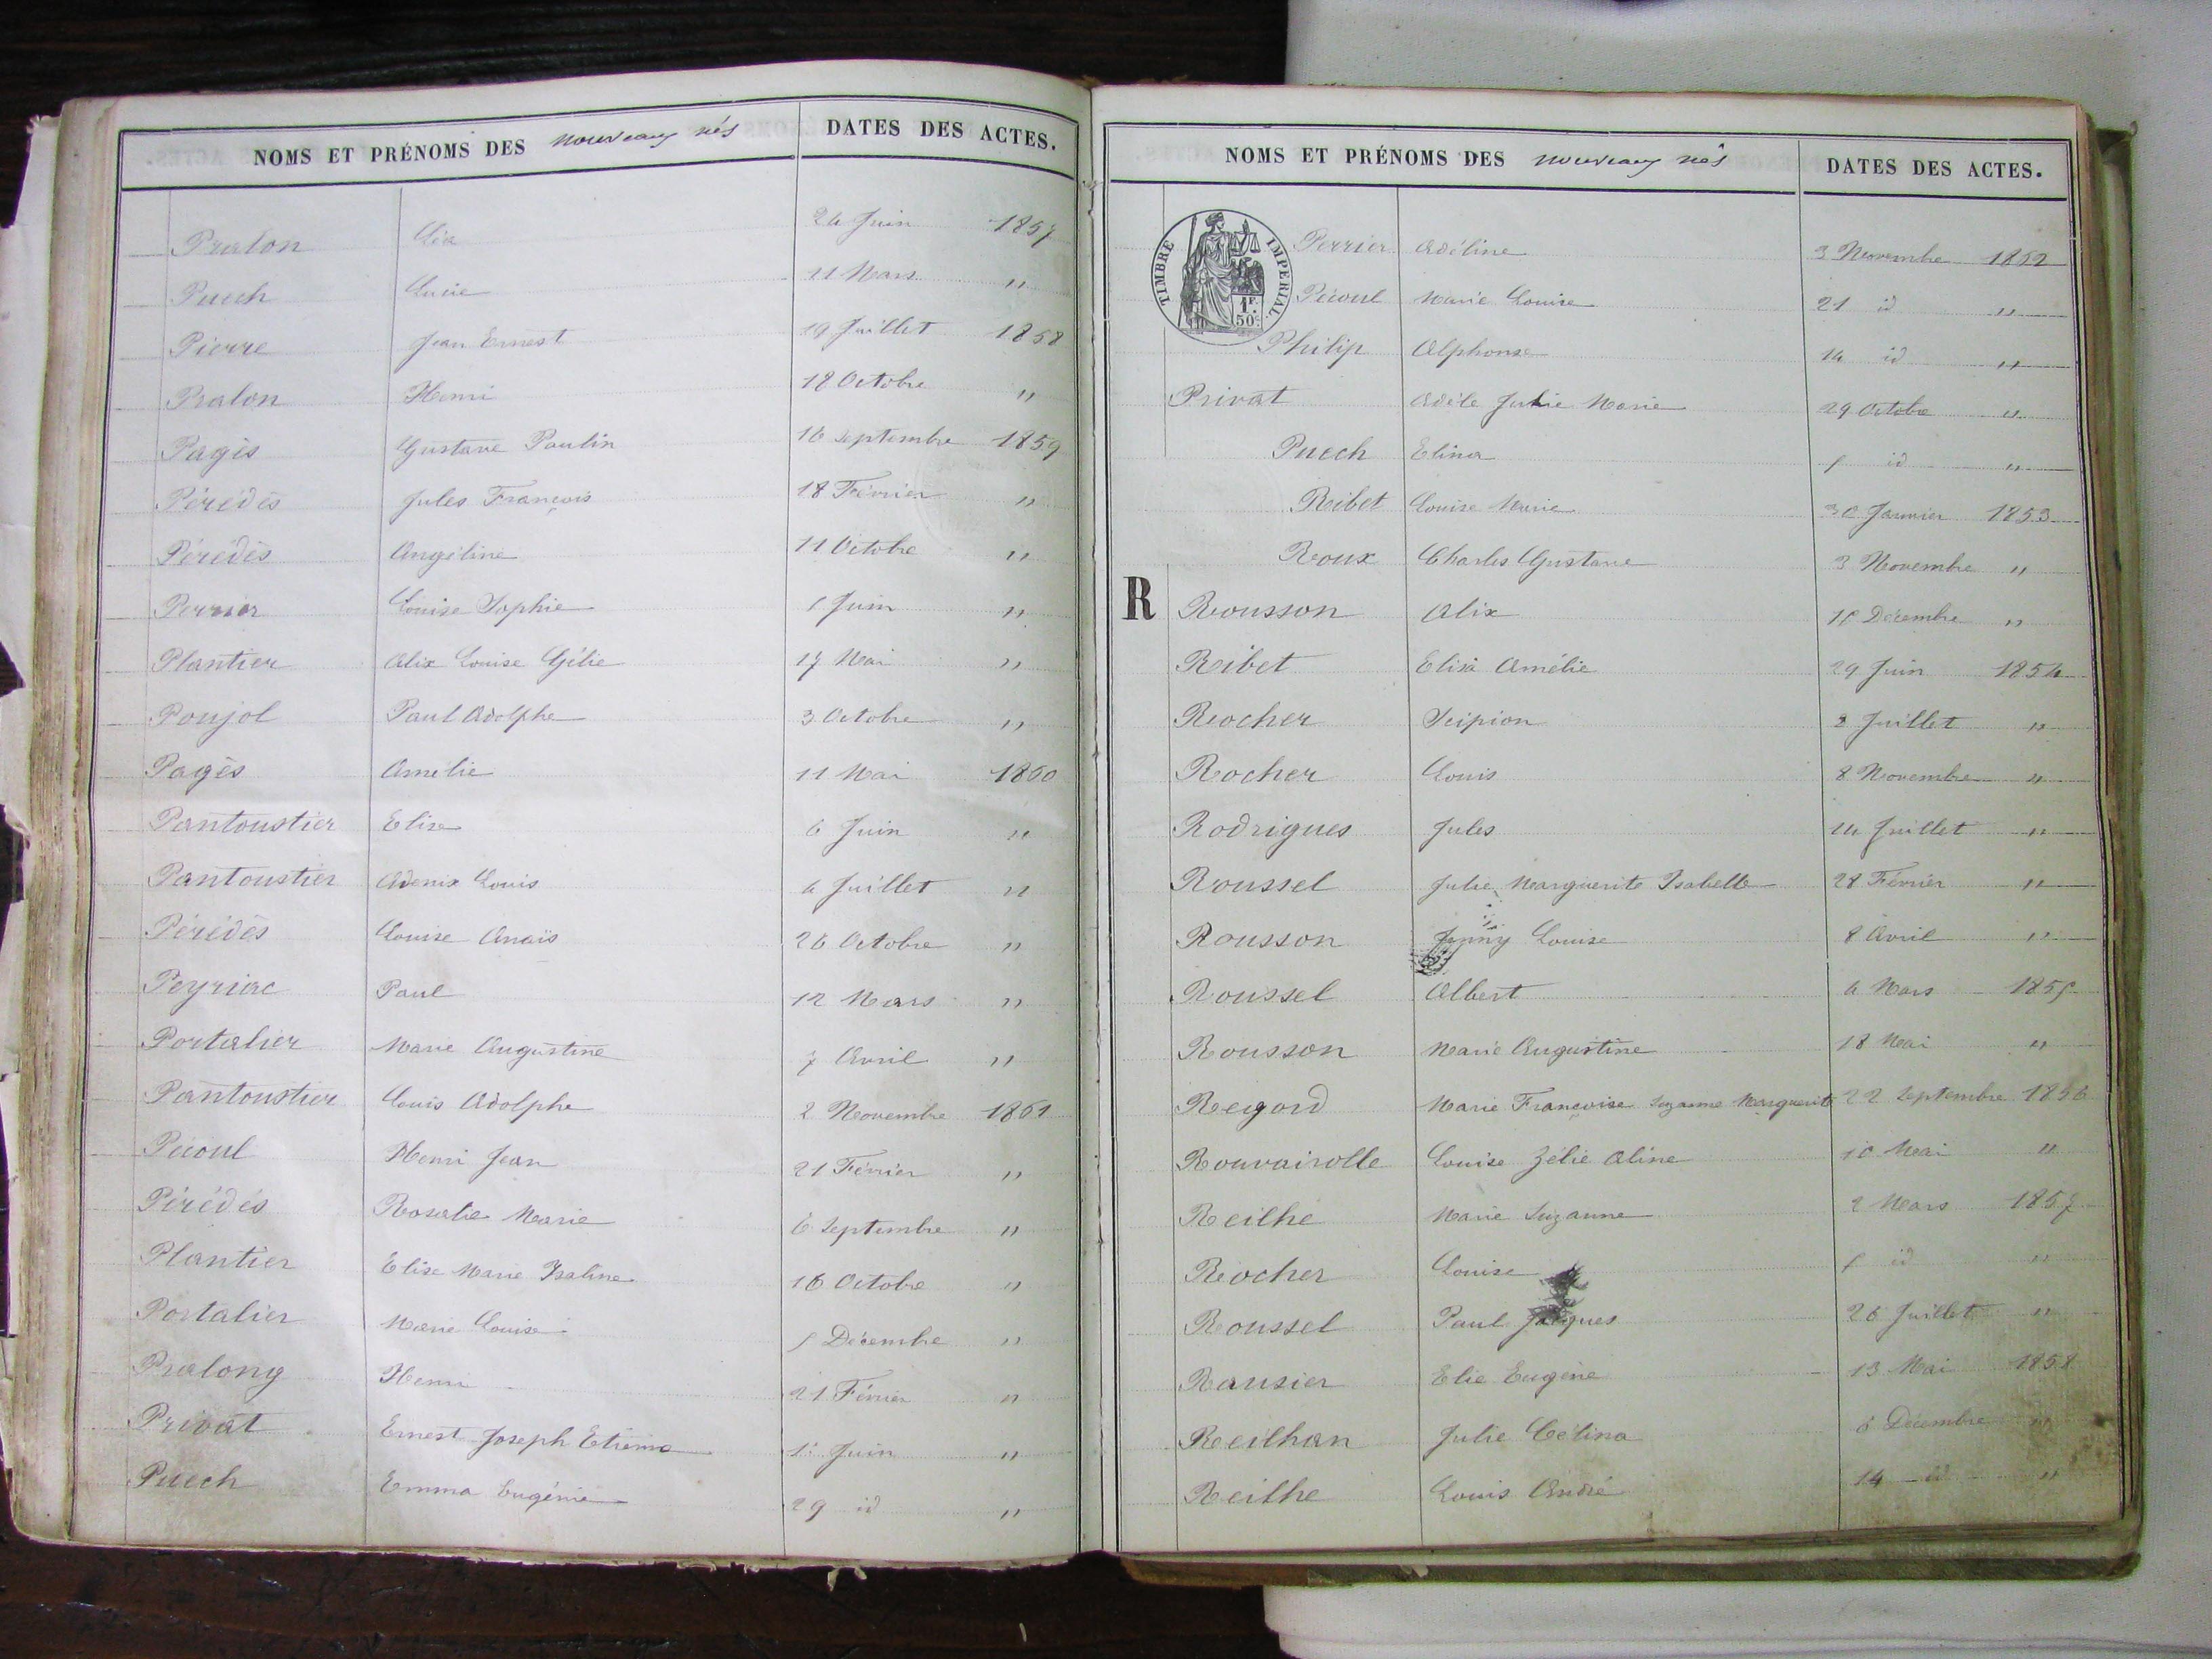 NOMS ET PRÉNOMS DES nouveaux nés DATES DES ACTES.
Pralon Lia 24 Juin 1857
Puech Lucie 11 Mars "
Pierre Jean Ernest 19 Juillet 1858
Pralon Henri 18 Octobre "
Pagès Gustave Paulin 16 septembre 1859
Pérédès Jules François 18 Février "
Pérédès Angéline 11 Octobre "
Perrier Louise Sophie 5 Juin "
Plantier Alix Louise Zélie 17 Mai "
Poujol Paul Adolphe 3 Octobre "
Pagès Amélie 11 Mai 1860
Pantoustier Elise 6 Juin "
Pantoustier Louis 4 Juillet "
Pérédès Louise Anaïs 26 Octobre "
Peyriac Paul 12 Mars "
Portalier Marie Augustine 7 Avril "
Pantoustier Louis Adolphe 2 Novembre 1861
Pécoul Henri Jean 21 Février "
Pérédès Rosalie Marie 6 septembre "
Plantier Elise Marie Isaline 16 Octobre "
Portalier Marie Louise 5 Décembre "
Pralong Henri 21 Février "
Privat Ernest Joseph Etienne 1er Juin "
Puech Emma Eugénie 29 id "
NOMS ET PRÉNOMS DES nouveaux nés DATES DES ACTES.
TIMBRE IMPERIAL.
1F.
50c.
Perrier Adéline 3 Novembre 1862
Pécoul Marie Louise 21 id "
Philip Alphonse 14 id "
Privat Adèle Julie Marie 29 Octobre "
Puech Elina 5 id "
Ribet Louise Marie 30 Janvier 1853
Roux Charles Gustave 3 Novembre "
R
Rousson Alix 15 Décembre "
Ribet Elisa Amélie 29 Juin 1854
Rocher Scipion 2 Juillet "
Rocher Louis 8 Novembre "
Rodrigues Jules 14 Juillet "
Roussel Julie Marguerite Isabelle 28 Février "
Rousson Jenny Louise 8 Avril "
Roussel Albert 4 Mars 1855
Rousson Marie Augustine 18 Mai "
Regord Marie Françoise Suzanne Marguerite 22 septembre 1856
Rouvairolle Louise Zélie Aline 10 Mai "
Reilhe Marie Suzanne 2 Mars 1857
Rocher Louise 5 id "
Roussel Paul Jacques 26 Juillet "
Rausier Elie Eugène 13 Mai 1858
Reilhan Julie Célina 6 Décembre "
Reilhe Louis André 14 id "